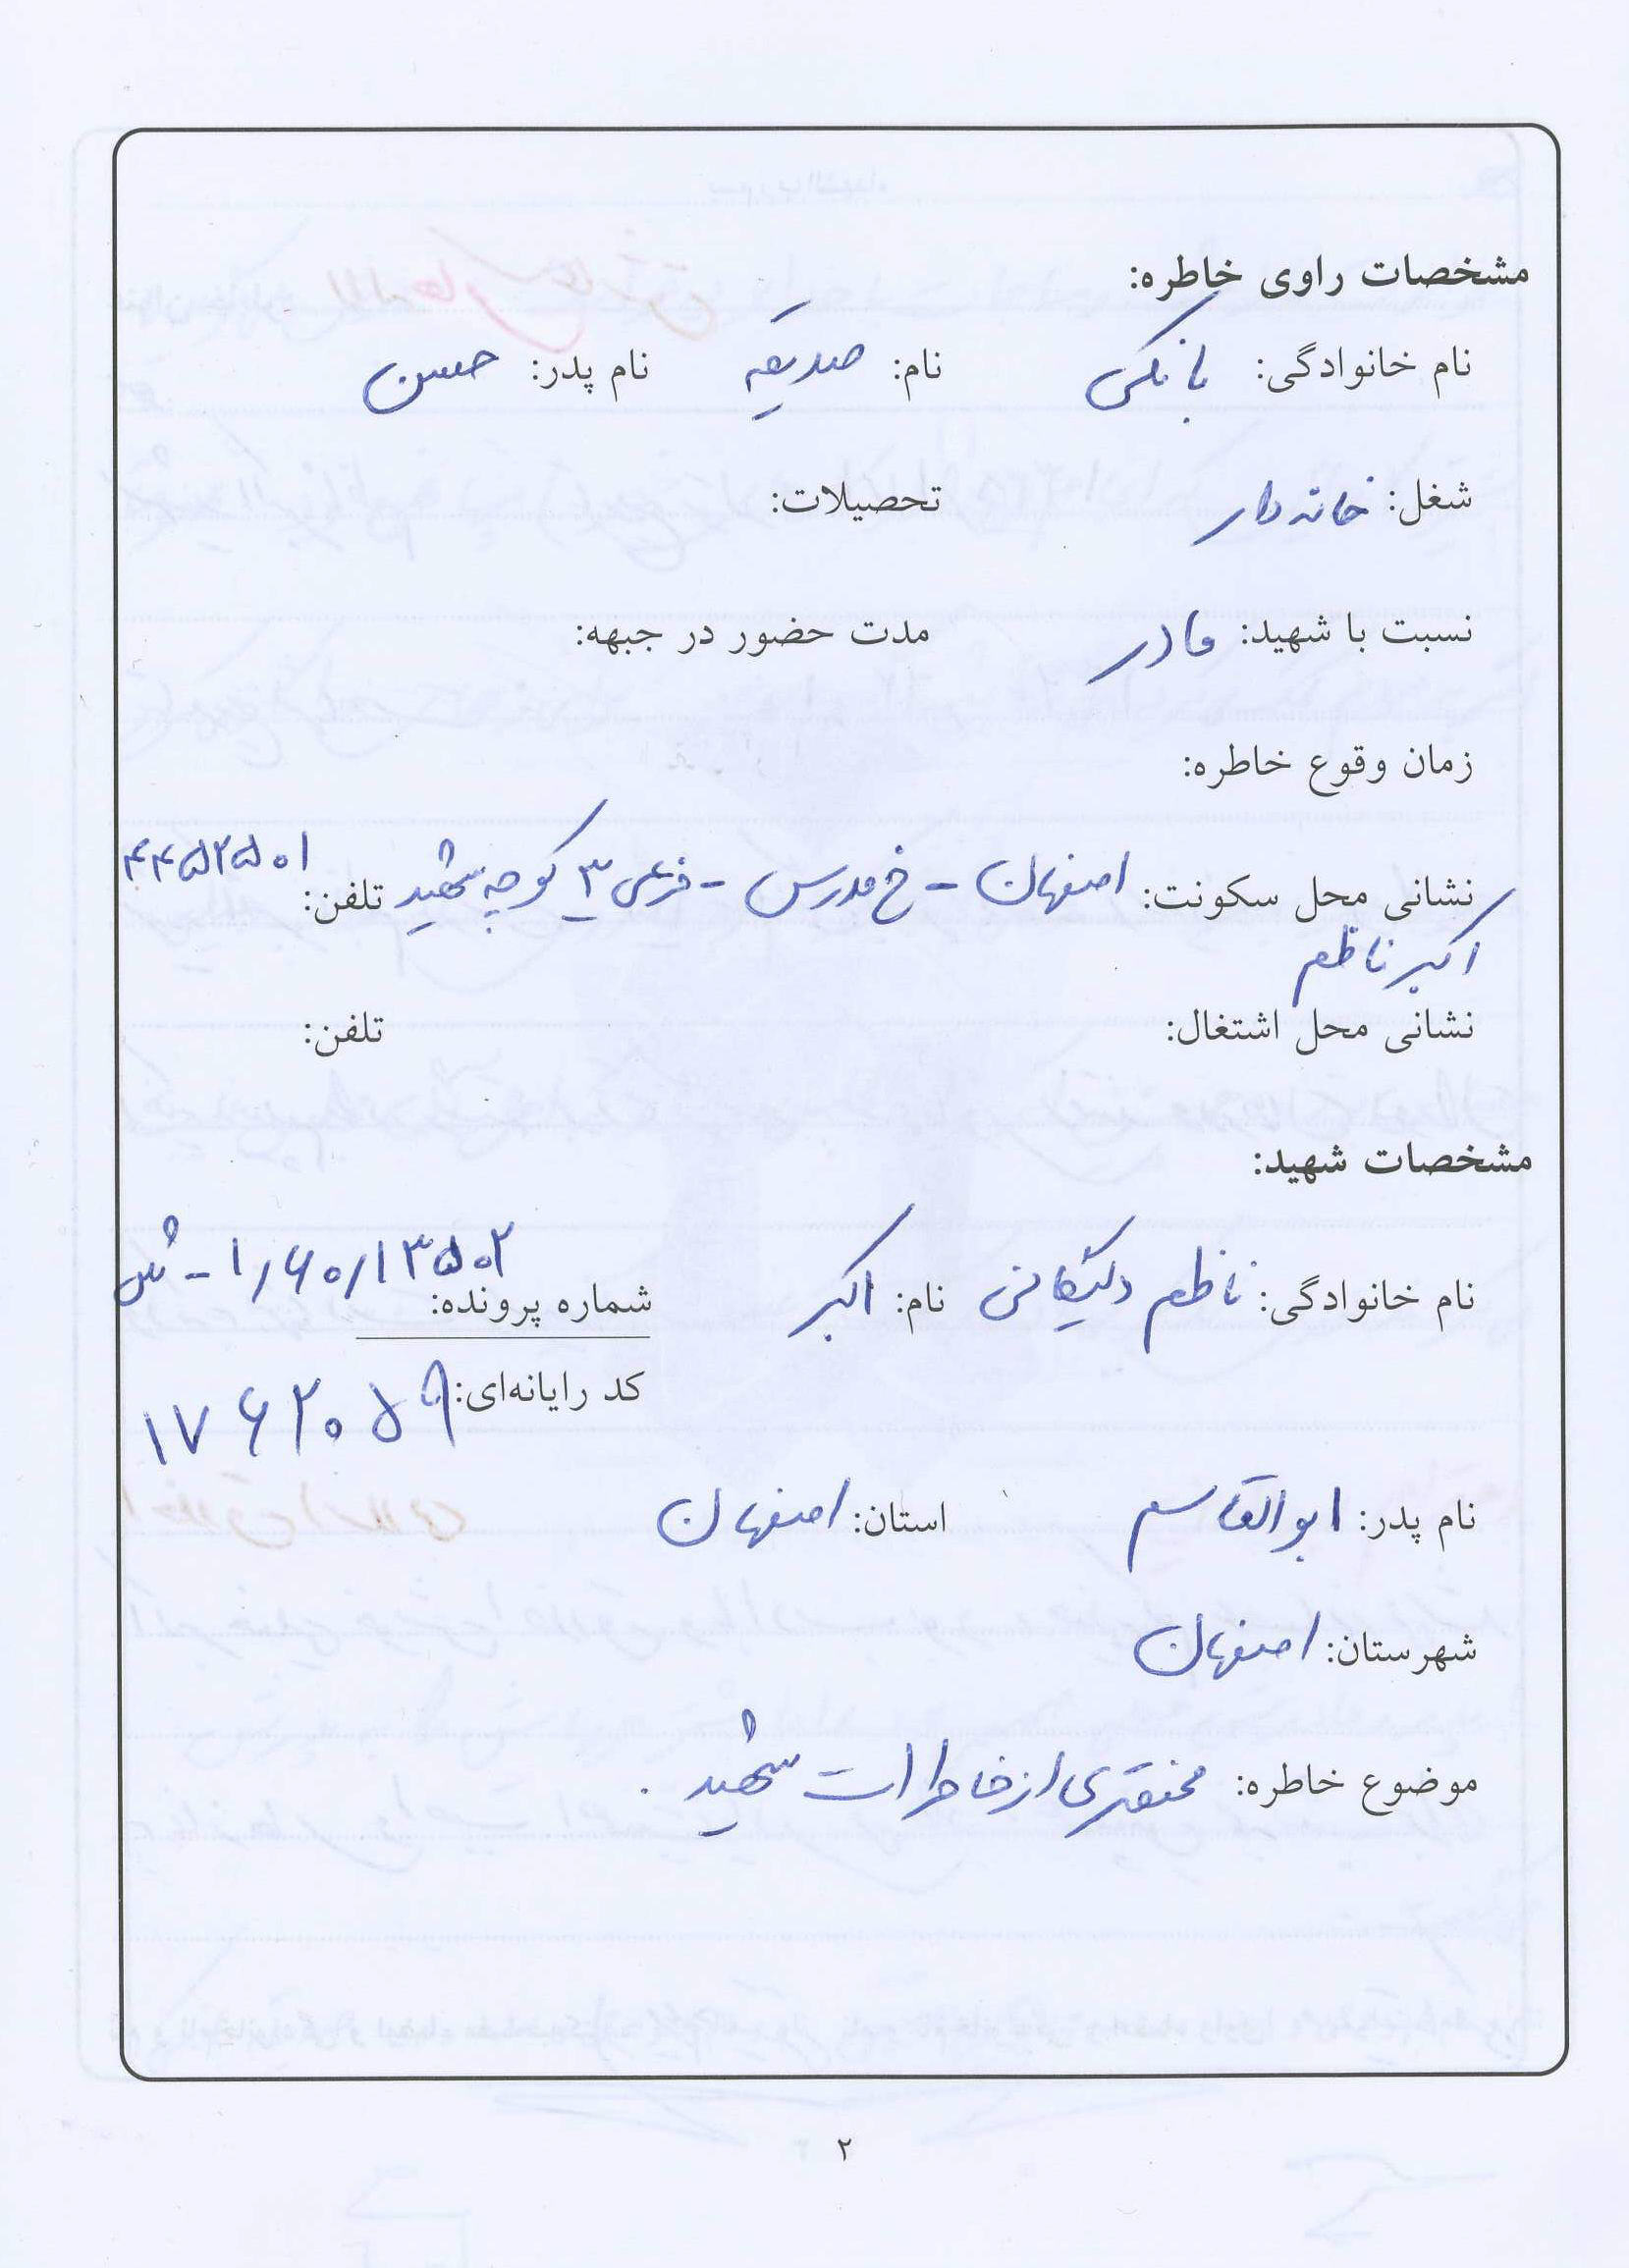 مشخصات راوی خاطره:
نام خانوادگی: بانکی نام: صدیقه نام پدر: حسن
شغل: خانه دار تحصیلات:
نسبت با شهید: مادر مدت حضور در جبهه:
زمان وقوع خاطره:
نشانی محل سکونت: اصفهان - خ مدرس - فرعی ۳ کوچه شهید تلفن: ۴۴۵۲۵۰۱
اکبر ناظم
نشانی محل اشتغال: تلفن:
مشخصات شهید:
نام خانوادگی: ناظم نام: اکبر شماره پرونده: ۱/۶۰/۱۳۵۰۲ - ش
کد رایانه‌ای:
نام پدر: ابوالقاسم استان: اصفهان
شهرستان: اصفهان
موضوع خاطره: مختصری از خاطرات شهید .
۲